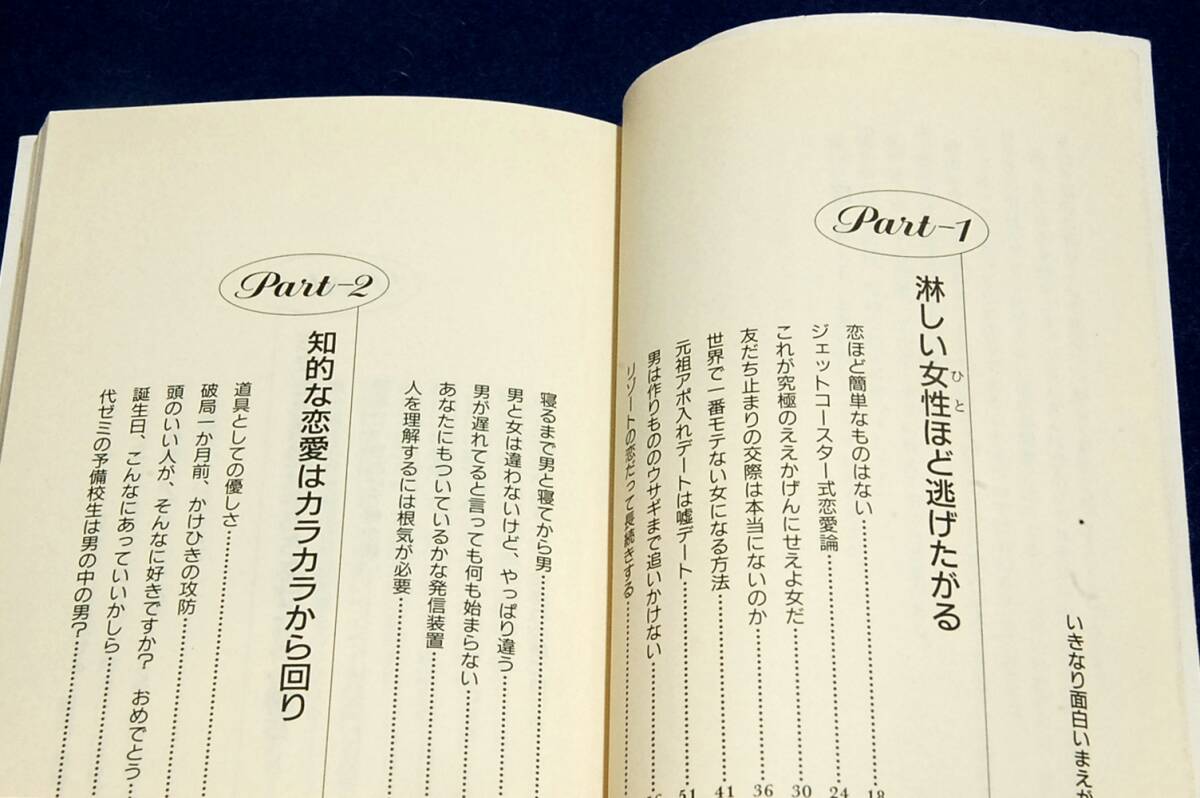 いきなり面白いまえが
Part-1
淋しい女性ほど逃げたがる
ひと
恋ほど簡単なものはない………18
ジェットコースター式恋愛論………24
これが究極のええかげんにせえよ女だ………30
友だち止まりの交際は本当にないのか………36
世界で一番モテない女になる方法………41
元祖アポ入れデートは嘘デート………51
男は作りもののウサギまで追いかけない………
リゾートの恋だって長続きする………
寝るまで男と寝てから男………
男と女は違わないけど、やっぱり違う………
男が遅れてると言っても何も始まらない………
あなたにもついているかな発信装置………
人を理解するには根気が必要………
Part-2
知的な恋愛はカラカラから回り
道具としての優しさ………
破局一か月前、かけひきの攻防………
頭のいい人が、そんなに好きですか?………
誕生日、こんなにあっていいかしら おめでとう………
代ゼミの予備校生は男の中の男?………